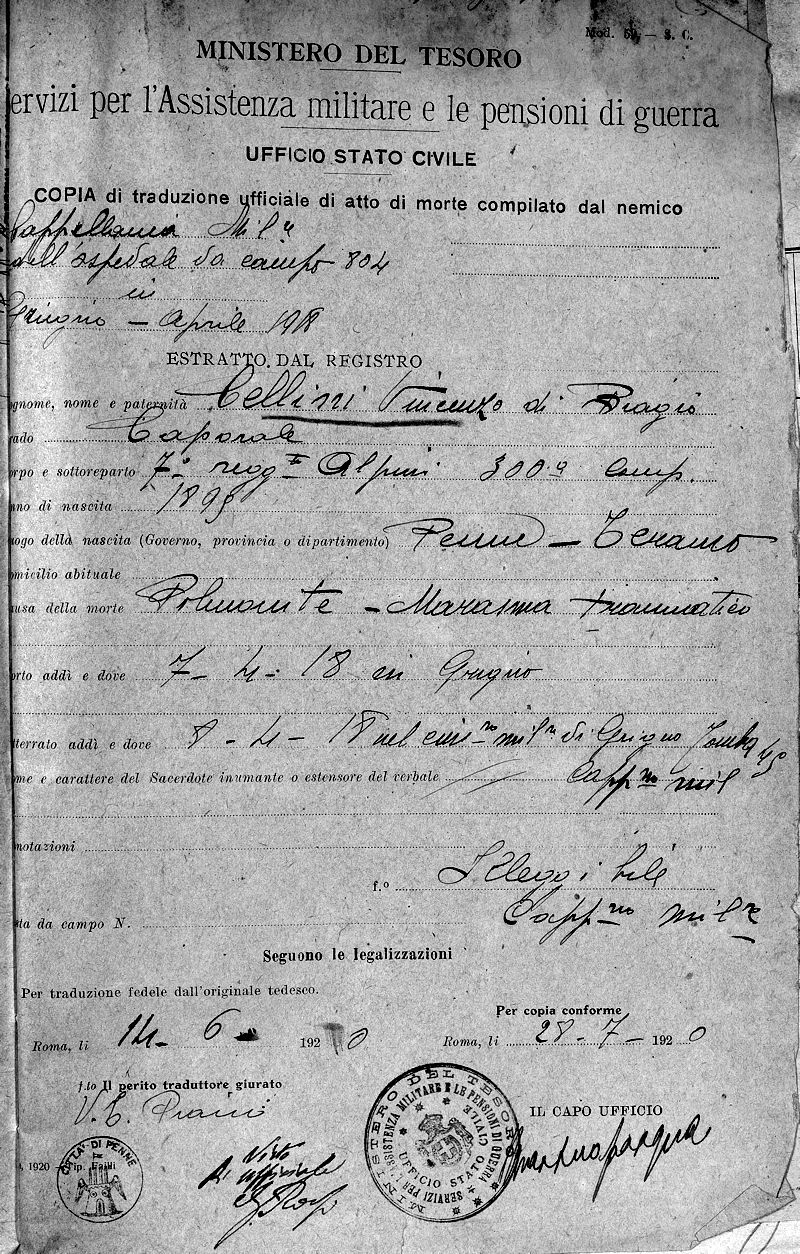 Mod. 69 — S. C.
MINISTERO DEL TESORO
ervizi per l'Assistenza militare e le pensioni di guerra
UFFICIO STATO CIVILE
COPIA di traduzione ufficiale di atto di morte compilato dal nemico
Cappellania Mil.e
dell'ospedale da campo 804
in
Grigno – Aprile 1918
ESTRATTO DAL REGISTRO
ognome, nome e paternità Cellini Vincenzo di Biagio
ado Caporale
orpo e sottoreparto 7° regg. Alpini 300ª Comp.
nno di nascita 1895
uogo della nascita (Governo, provincia o dipartimento) Penne – Teramo
omicilio abituale
usa della morte Polmonite – Marasma traumatico
orto addì e dove 7 – 4 – 18 in Grigno
tterrato addì e dove 8 – 4 – 18 nel cim.ro mil.e di Grigno Tomba 45
me e carattere del Sacerdote inumante o estensore del verbale Capp.no mil
notazioni
f.° Illeggibile
Capp.no mil.e
sta da campo N.
Seguono le legalizzazioni
Per traduzione fedele dall'originale tedesco.
Per copia conforme
Roma, lì 14 – 6 – 1920
Roma, lì 28 – 7 – 1920
f.to Il perito traduttore giurato
IL CAPO UFFICIO
1920 Tip. Failli
CITTÀ DI PENNE
Visto
MINISTERO DEL TESORO
SERVIZI PER L'ASSISTENZA MILITARE E LE PENSIONI DI GUERRA
UFFICIO STATO CIVILE